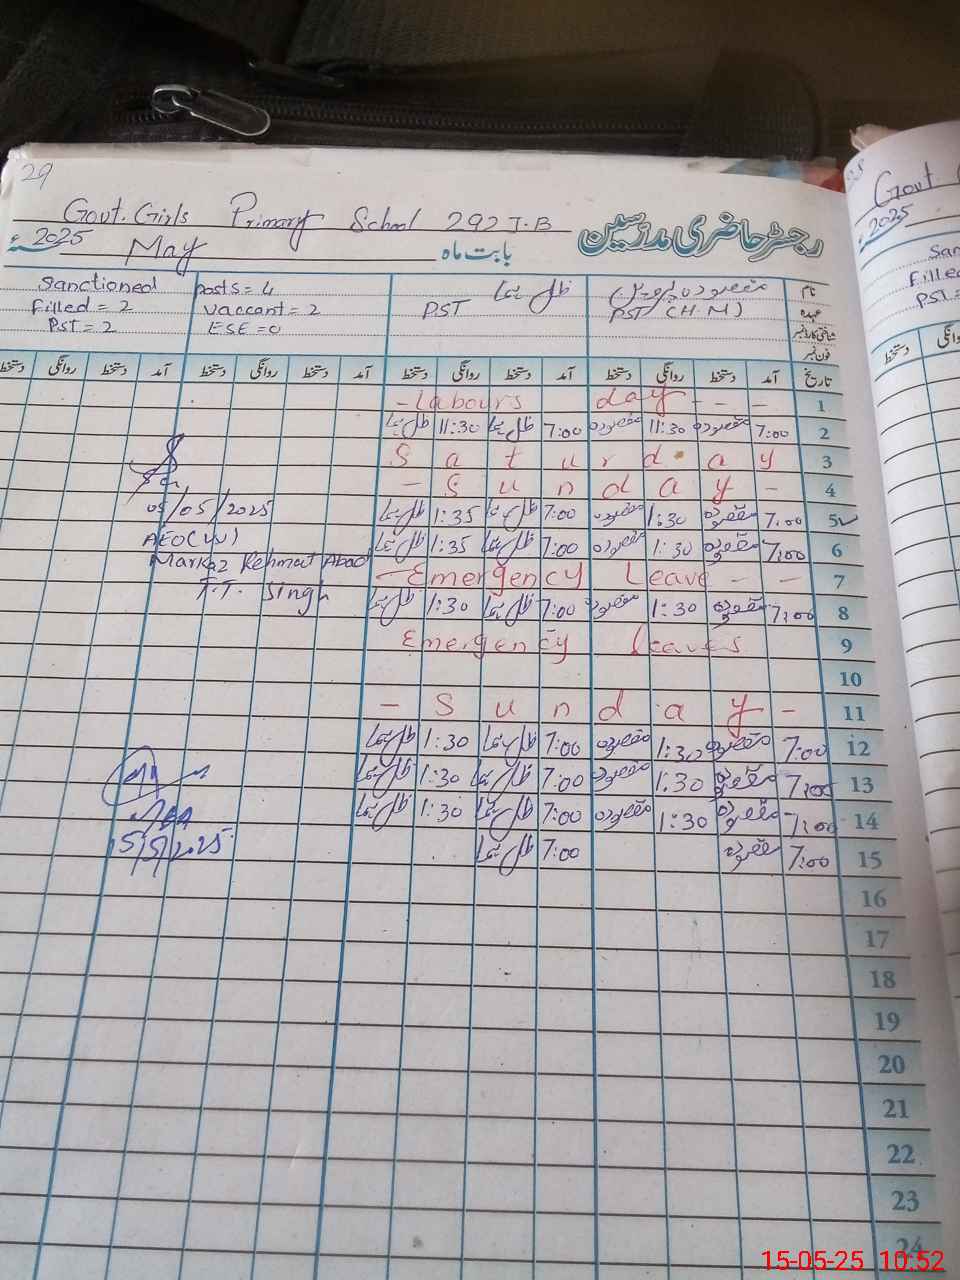 29
Govt. Girls Primary School 292 J.B
رجسٹر حاضری مدرسین
بابت ماہ May 2025ء
نام
Sanctioned posts = 4
عہدہ PST (H.M) PST
Filled = 2 Vaccant = 2
شناختی کارڈ نمبر
PST = 2 ESE = 0
فون نمبر
تاریخ آمد دستخط روانگی دستخط آمد دستخط روانگی دستخط آمد دستخط روانگی دستخط آمد دستخط روانگی دستخط
1 - Labours day - - -
2 7:00 مقصودہ 11:30 مقصودہ 7:00 11:30
3 Saturday
4 - Sunday -
5 7:00 مقصودہ 1:30 مقصودہ 7:00 1:35
05/05/2025
6 7:00 مقصودہ 1:30 مقصودہ 7:00 1:35
AEO(W)
Markaz Rehmat Abad
7 - Emergency Leave - -
T.T. Singh
8 7:00 مقصودہ 1:30 مقصودہ 7:00 1:30
9 Emergency leaves
10
11 - Sunday -
12 7:00 مقصودہ 1:30 مقصودہ 7:00 1:30
13 7:00 مقصودہ 1:30 مقصودہ 7:00 1:30
14 7:00 مقصودہ 1:30 مقصودہ 7:00 1:30
15 7:00 مقصودہ 7:00
15/5/2025
16
17
18
19
20
21
22
23
24
Govt.
2025
Filled
PST =
دستخط
15-05-25 10:52